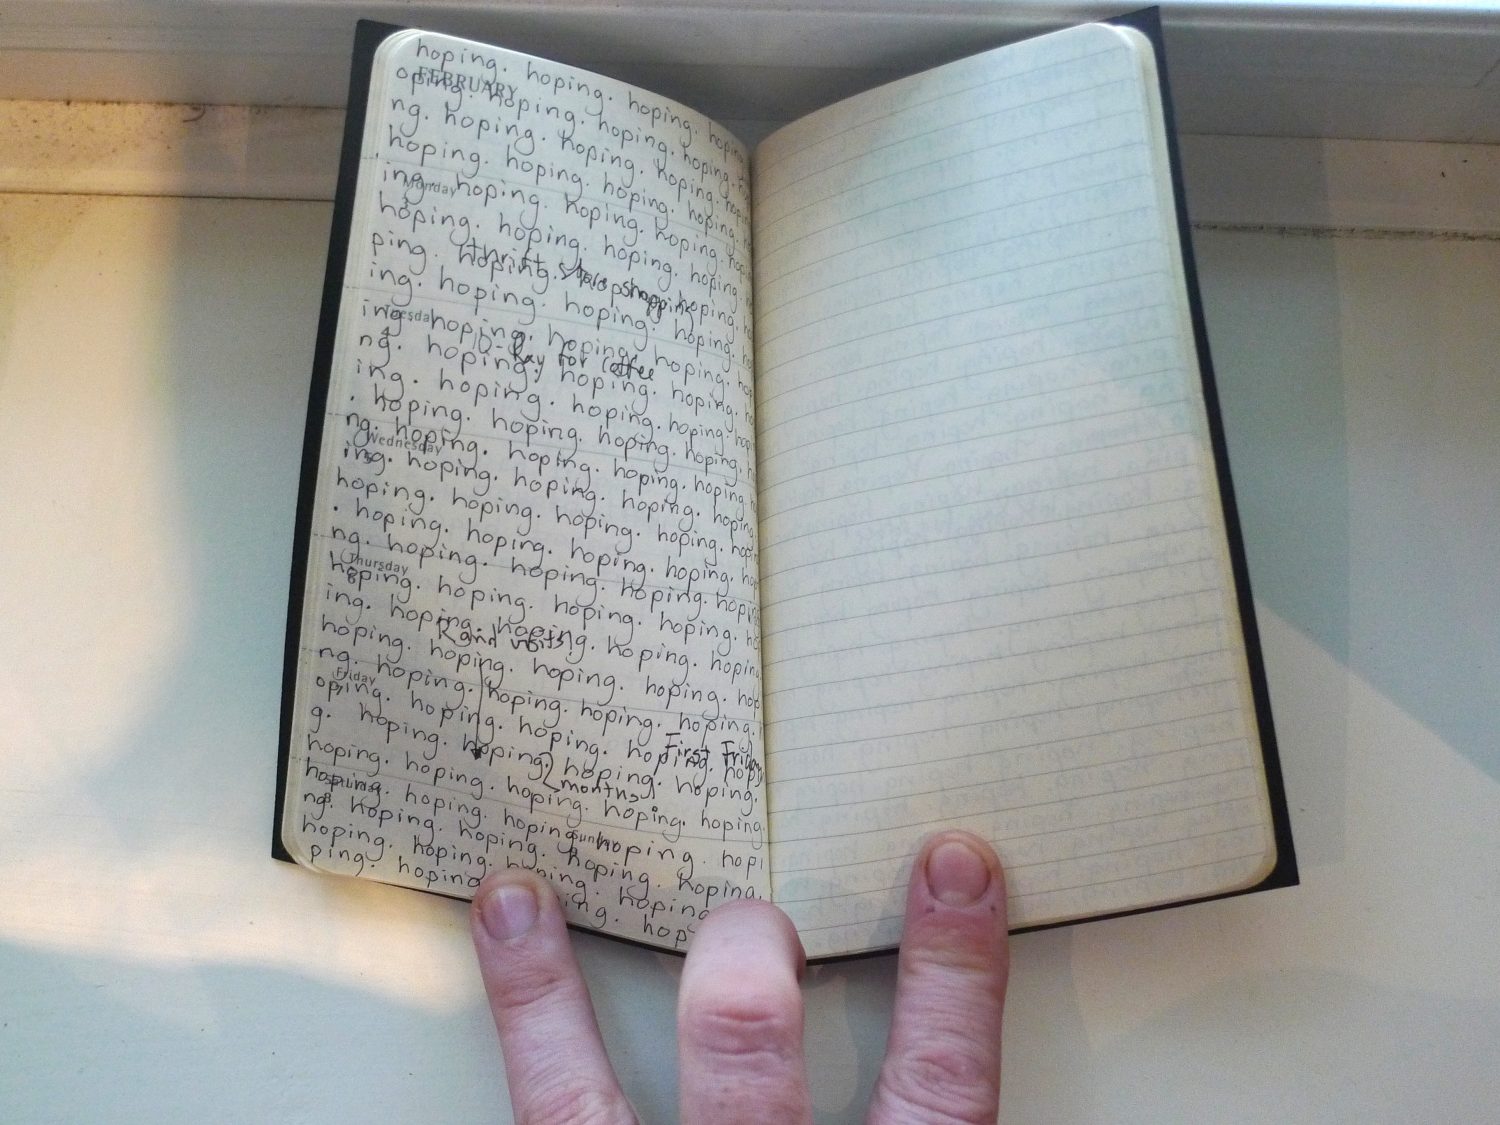 hoping. hoping. hoping. hoping
FEBRUARY
oping. hoping. hoping. hoping.
ng. hoping. hoping. hoping. hopin
hoping. hoping. hoping. hoping.
Monday
ing. hoping. hoping. hoping. hopin
hoping. hoping. hoping. hoping.
thrift store shopping
ping. hoping. hoping. hoping.
ing. hoping. hoping. hoping. h
Tuesday
4
ing. hoping. hoping. hoping. ho
Ray for coffee
ng. hoping. hoping. hoping.
ing. hoping. hoping. hoping. hopi
. hoping. hoping. hoping. hoping.
Wednesday
5
ng. hoping. hoping. hoping. hoping.
ing. hoping. hoping. hoping. hoping
hoping. hoping. hoping. hoping. hopi
. hoping. hoping. hoping. hoping. ho
Thursday
6
ng. hoping. hoping. hoping. hoping
hoping. hoping. hoping. hoping. ho
ing. hoping. hoping. hoping. hoping
Rand visits
hoping. hoping. hoping. hoping. hop
Friday
7
ng. hoping. hoping. hoping. hoping.
oping. hoping. hoping. hoping. hopi
First Friday
g. hoping. hoping. hoping. hoping.
(2 months)
hoping. hoping. hoping. hoping. hoping.
Saturday
8
hoping. hoping. hoping. hoping. hopi
Sunday
9
ng. hoping. hoping. hoping. hoping.
hoping. hoping. hoping. hoping
ping. hoping
ing. hop